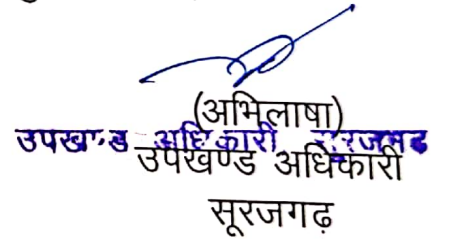 (अभिलाषा)
उपखण्ड अधिकारी सूरजगढ
उपखण्ड अधिकारी
सूरजगढ़